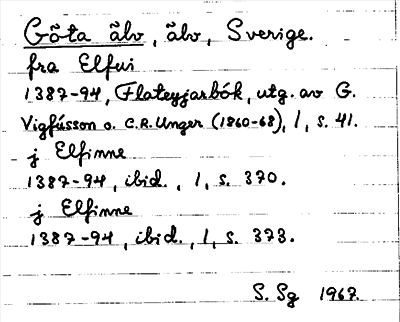 Göta älv, älv, Sverige.
fra Elfui
1387-94, Flateyjarbók, utg. av G.
Vigfússon o. C.R. Unger (1860-68), 1, s. 41.
j Elfinne
1387-94, ibid., 1, s. 370.
j Elfinne
1387-94, ibid., 1, s. 373.
S. Sg 1967.